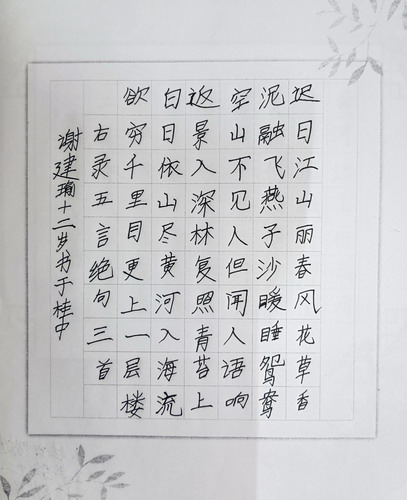 迟日江山丽春风花草香
泥融飞燕子沙暖睡鸳鸯
空山不见人但闻人语响
返景入深林复照青苔上
白日依山尽黄河入海流
欲穷千里目更上一层楼
右录五言绝句三首
谢建十二岁书于桂中